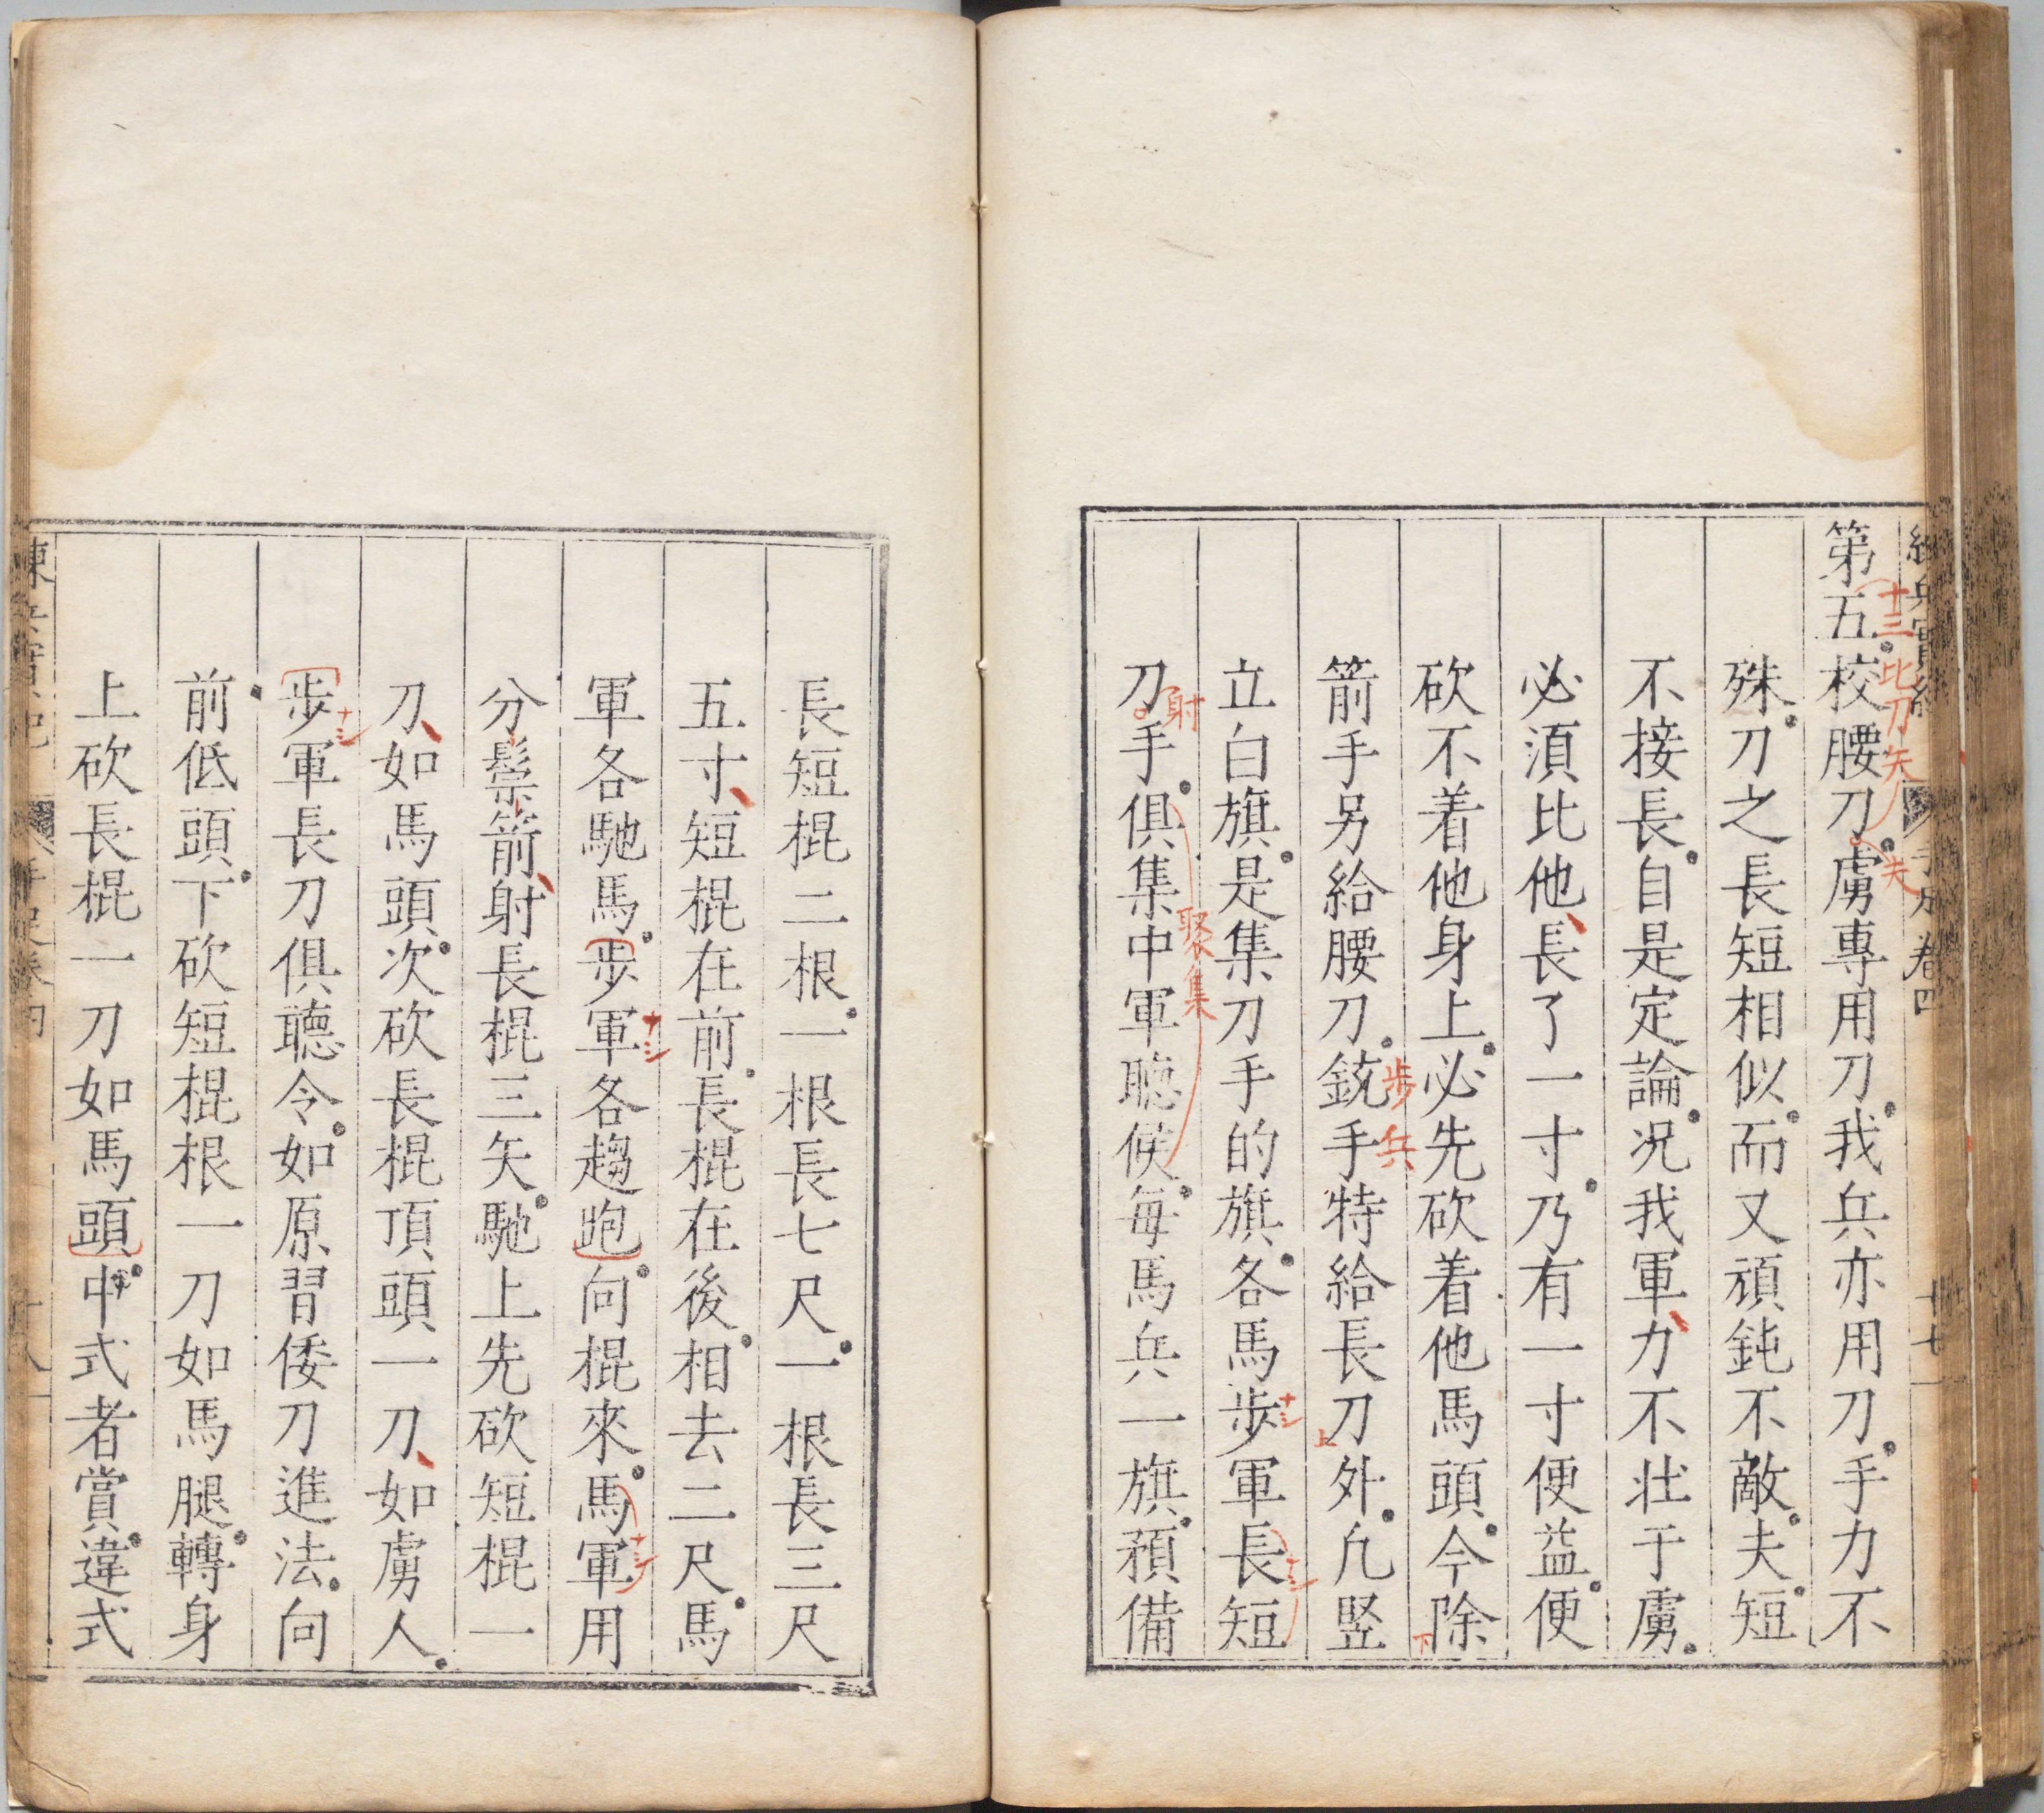 第五校腰刀虜專用刀我兵亦用刀手力不
殊刀之長短相似而又頑鈍不敵夫短
不接長自是定論况我軍力不壮于虜
必湏比他長了一寸乃有一寸便益便
砍不着他身上必先砍着他馬頭今除
箭手另給腰刀銃手特給長刀外凢竪
立白旗是集刀手的旗各馬步軍長短
刀手俱集中軍聽候每馬兵一旗預備
長短棍二根一根長七尺一根長三尺
五寸短棍在前長棍在後相去二尺馬
軍各馳馬步軍各趨跑向棍來馬軍用
分鬃箭射長棍三矢馳上先砍短棍一
刀如馬頭次砍長棍頂頭一刀如虜人
步軍長刀俱聽令如原習倭刀進法向
前低頭下砍短棍根一刀如馬腿轉身
上砍長棍一刀如馬頭中式者賞違式
十三
比刀矢
夫
步兵
上
下
射
聚集
卷四
十七